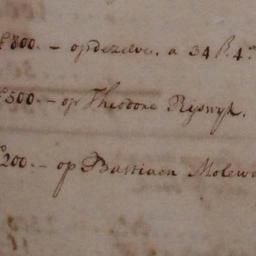 £800. — op dezelve. a 34 ß. 4.
£500. — op Theodore Ryswyk.
200. — op Bastiaen Molew